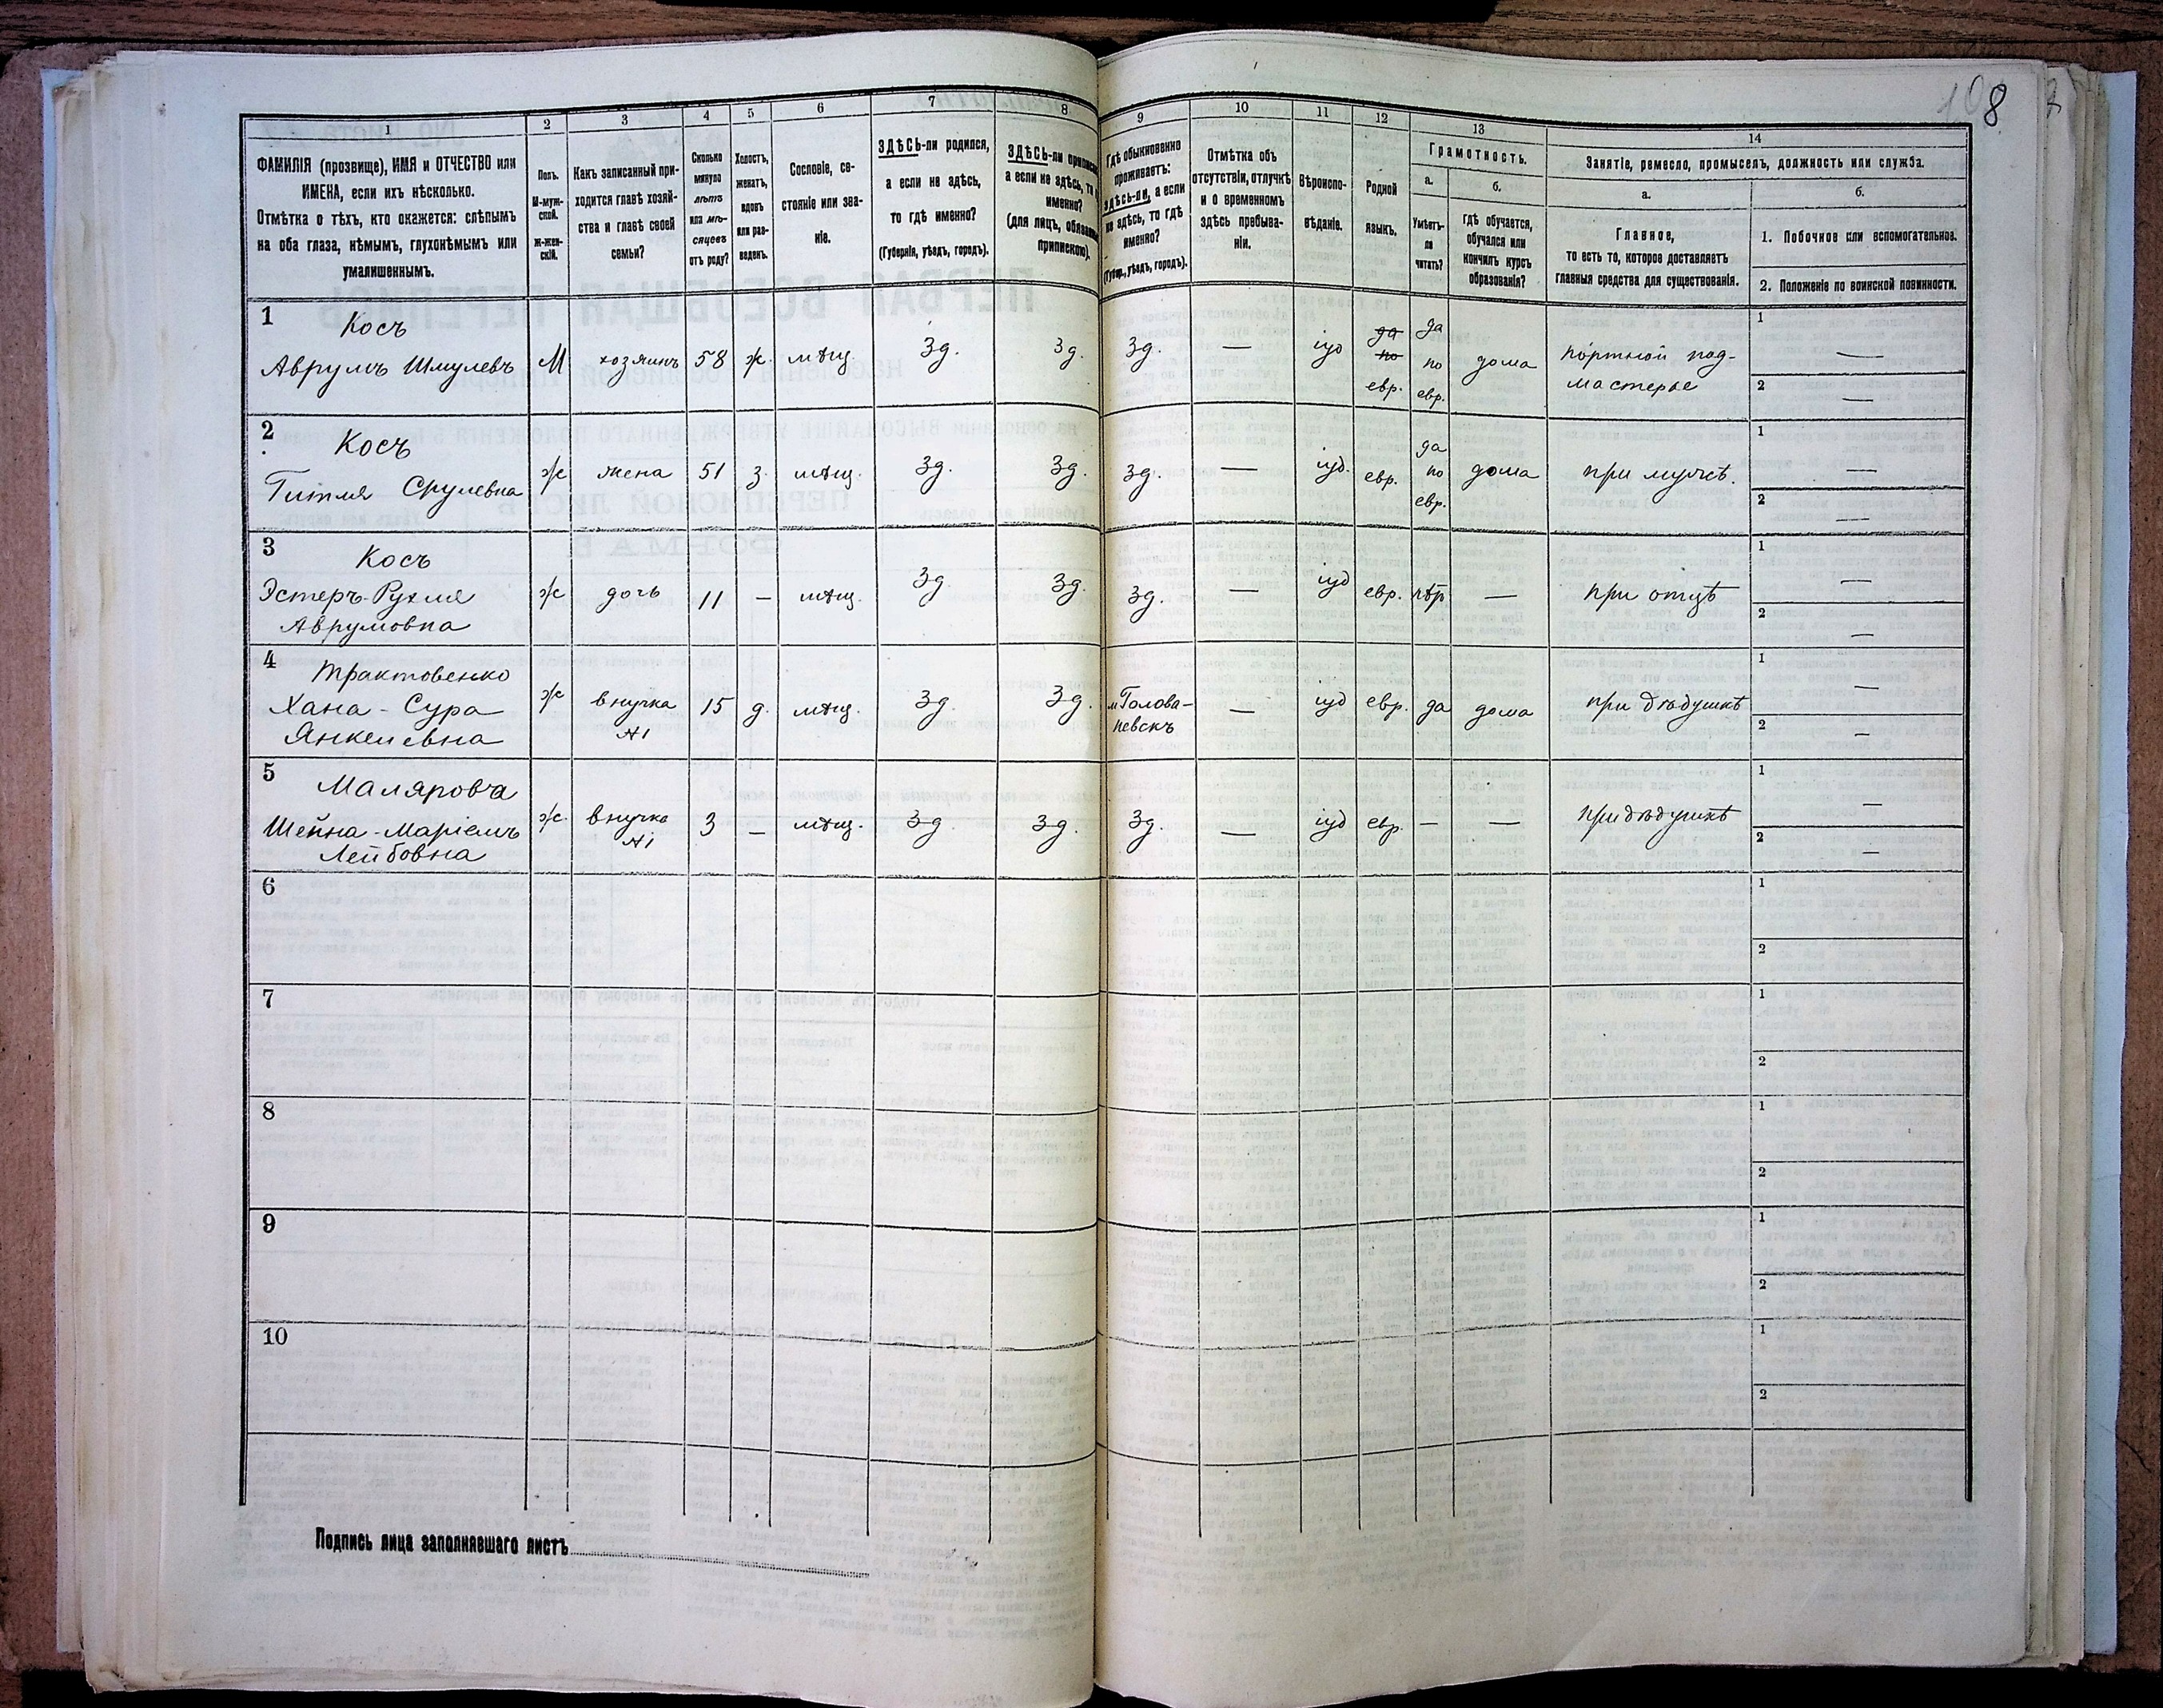 108
1
2
3
4
5
6
7
8
9
10
11
12
13
14
ФАМИЛІЯ (прозвище), ИМЯ и ОТЧЕСТВО или
ИМЕНА, если ихъ нѣсколько.
Отмѣтка о тѣхъ, кто окажется: слѣпымъ
на оба глаза, нѣмымъ, глухонѣмымъ или
умалишеннымъ.
Полъ.
М-муж-
ской.
Ж-жен-
скій.
Какъ записанный при-
ходится главѣ хозяй-
ства и главѣ своей
семьи?
Сколько
минуло
лѣтъ
или мѣ-
сяцевъ
отъ роду?
Холостъ,
женатъ,
вдовъ
или раз-
веденъ.
Сословіе, со-
стояніе или зва-
ніе.
ЗДѢСЬ-ли родился,
а если не здѣсь,
то гдѣ именно?
(Губернія, уѣздъ, городъ).
ЗДѢСЬ-ли
а если не здѣсь,
именно?
(для лицъ,
припискою).
Гдѣ обыкновенно
проживаетъ:
здѣсь-ли, а если
не здѣсь, то гдѣ
именно?
(Губер., уѣздъ, городъ).
Отмѣтка объ
отсутствіи, отлучкѣ
и о временномъ
здѣсь пребыва-
ніи.
Вѣроиспо-
вѣданіе.
Родной
языкъ.
Грамотность.
а.
Умѣетъ-
ли
читать?
б.
Гдѣ обучается,
обучался или
кончилъ курсъ
образованія?
Занятіе, ремесло, промыселъ, должность или служба.
а.
Главное,
то есть то, которое доставляетъ
главныя средства для существованія.
б.
1. Побочное или вспомогательное.
2. Положеніе по воинской повинности.
1 Косъ
Аврумъ Шмулевъ М хозяинъ 58 ж. мѣщ. Зд. Зд. Зд. — іуд да по евр. да по евр. дома портной под-
мастерье 1 — 2 —
2 Косъ
Гитля Срулевна ж жена 51 з. мѣщ. Зд. Зд. Зд. — іуд. евр. да по евр. дома при мужѣ. 1 — 2 —
3 Косъ
Эстеръ-Рухля
Аврумовна ж дочь 11 — мѣщ. Зд. Зд. Зд. — іуд евр. — при отцѣ 1 — 2 —
4 Трактовенко
Хана-Сура
Янкелевна ж внучка №1 15 д. мѣщ. Зд. Зд. м Голова-
невскъ — іуд евр. да дома при дѣдушкѣ 1 — 2 —
5 Маляровa
Шейна-Маріемъ
Лейбовна ж. внучка №1 3 — мѣщ. Зд. Зд. Зд. — іуд евр. — — при дѣдушкѣ 1 — 2 —
6 1 2
7 1 2
8 1 2
9 1 2
10 1 2
Подпись лица заполнявшаго листъ